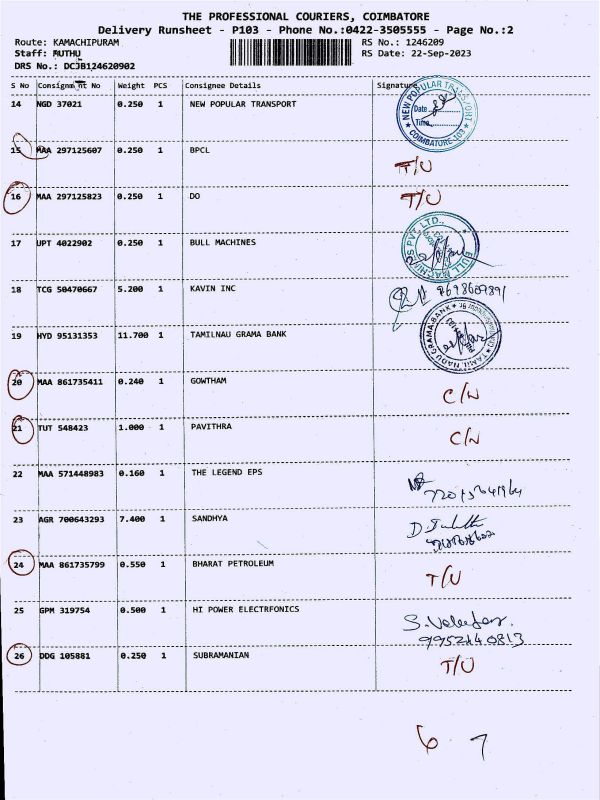 THE PROFESSIONAL COURIERS, COIMBATORE
Delivery Runsheet - P103 - Phone No.:0422-3505555 - Page No.:2
Route: KAMACHIPURAM RS No.: 1246209
Staff: MUTHU RS Date: 22-Sep-2023
DRS No.: DCJB124620902
S No Consignment No Weight PCS Consignee Details Signature
14 NGD 37021 0.250 1 NEW POPULAR TRANSPORT
NEW POPULAR TRANSPORT
Date
Time
COIMBATORE 103
15 MAA 297125607 0.250 1 BPCL T/U
16 MAA 297125823 0.250 1 DO T/U
17 UPT 4022902 0.250 1 BULL MACHINES
BULL MACHINES PVT. LTD.
18 TCG 50470667 5.200 1 KAVIN INC
19 HYD 95131353 11.700 1 TAMILNAU GRAMA BANK
TAMIL NADU GRAMA BANK
20 MAA 861735411 0.240 1 GOWTHAM C/N
21 TUT 548423 1.000 1 PAVITHRA C/N
22 MAA 571448983 0.160 1 THE LEGEND EPS
23 AGR 700643293 7.400 1 SANDHYA
24 MAA 861735799 0.550 1 BHARAT PETROLEUM T/U
25 GPM 319754 0.500 1 HI POWER ELECTRFONICS
9952140813
26 DDG 105881 0.250 1 SUBRAMANIAN T/U
6 7